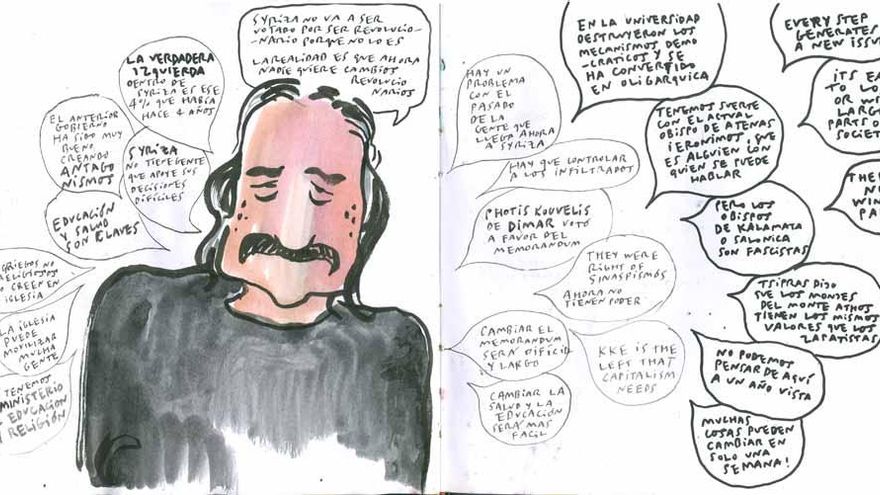 SYRIZA NO VA A SER
VOTADO POR SER REVOLUCIO-
-NARIO PORQUE NO LO ES
LA REALIDAD ES QUE AHORA
NADIE QUIERE CAMBIOS
REVOLUCIO
NARIOS
LA VERDADERA
IZQUIERDA
DENTRO DE
SYRIZA ES ESE
4% QUE HABÍA
HACE 4 AÑOS
EL ANTERIOR
GOBIERNO
HA SIDO MUY
BUENO
CREANDO
ANTAGO
NISMOS
SYRIZA
NO TIENE GENTE
QUE APOYE SUS
DECISIONES
DIFÍCILES
EDUCACIÓN
Y SALUD
SON CLAVES
GRIEGOS NO
RELIGIOSOS
CREEN EN
IGLESIA
LA IGLESIA
PUEDE
MOVILIZAR
MUCHA
GENTE
TENEMOS
MINISTERIO
EDUCACION
Y RELIGIÓN
HAY UN
PROBLEMA
CON EL
PASADO
DE LA
GENTE QUE
LLEGA AHORA
A SYRIZA
HAY QUE CONTROLAR
A LOS INFILTRADOS
PHOTIS KOUVELIS
DE DIMAR VOTÓ
A FAVOR DEL
MEMORANDUM
THEY WERE
RIGHT OF
SINASPISMOS
AHORA NO
TIENEN PODER
CAMBIAR EL
MEMORANDUM
SERÁ DIFÍCIL
Y LARGO
KKE IS THE
LEFT THAT
CAPITALISM
NEEDS
CAMBIAR LA
SALUD Y LA
EDUCACIÓN
SERÁ MAS
FACIL
EN LA UNIVERSIDAD
DESTRUYERON LOS
MECANISMOS DEMO
-CRATICOS Y SE
HA CONVERTIDO
EN OLIGARQUICA
TENEMOS SUERTE
CON EL ACTUAL
OBISPO DE ATENAS
IERONIMOS, QUE
ES ALGUIEN CON
QUIEN SE PUEDE
HABLAR
PERO LOS
OBISPOS
DE KALAMATA
O SALONICA
SON FASCISTAS
TSIPRAS DIJO
QUE LOS MONJES
DEL MONTE ATHOS
TIENEN LOS MISMOS
VALORES QUE LOS
ZAPATISTAS
NO PODEMOS
PENSAR DE AQUÍ
A UN AÑO VISTA
MUCHAS
COSAS PUEDEN
CAMBIAR EN
SOLO UNA
SEMANA!
EVERY STEP
GENERATES
A NEW ISSU
ITS EA
TO LO
OR W
LARG
PARTS O
SOCIET
THE
N
WIN
PA